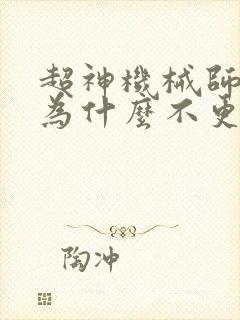 超神機械師
為什麼不更
陶冲